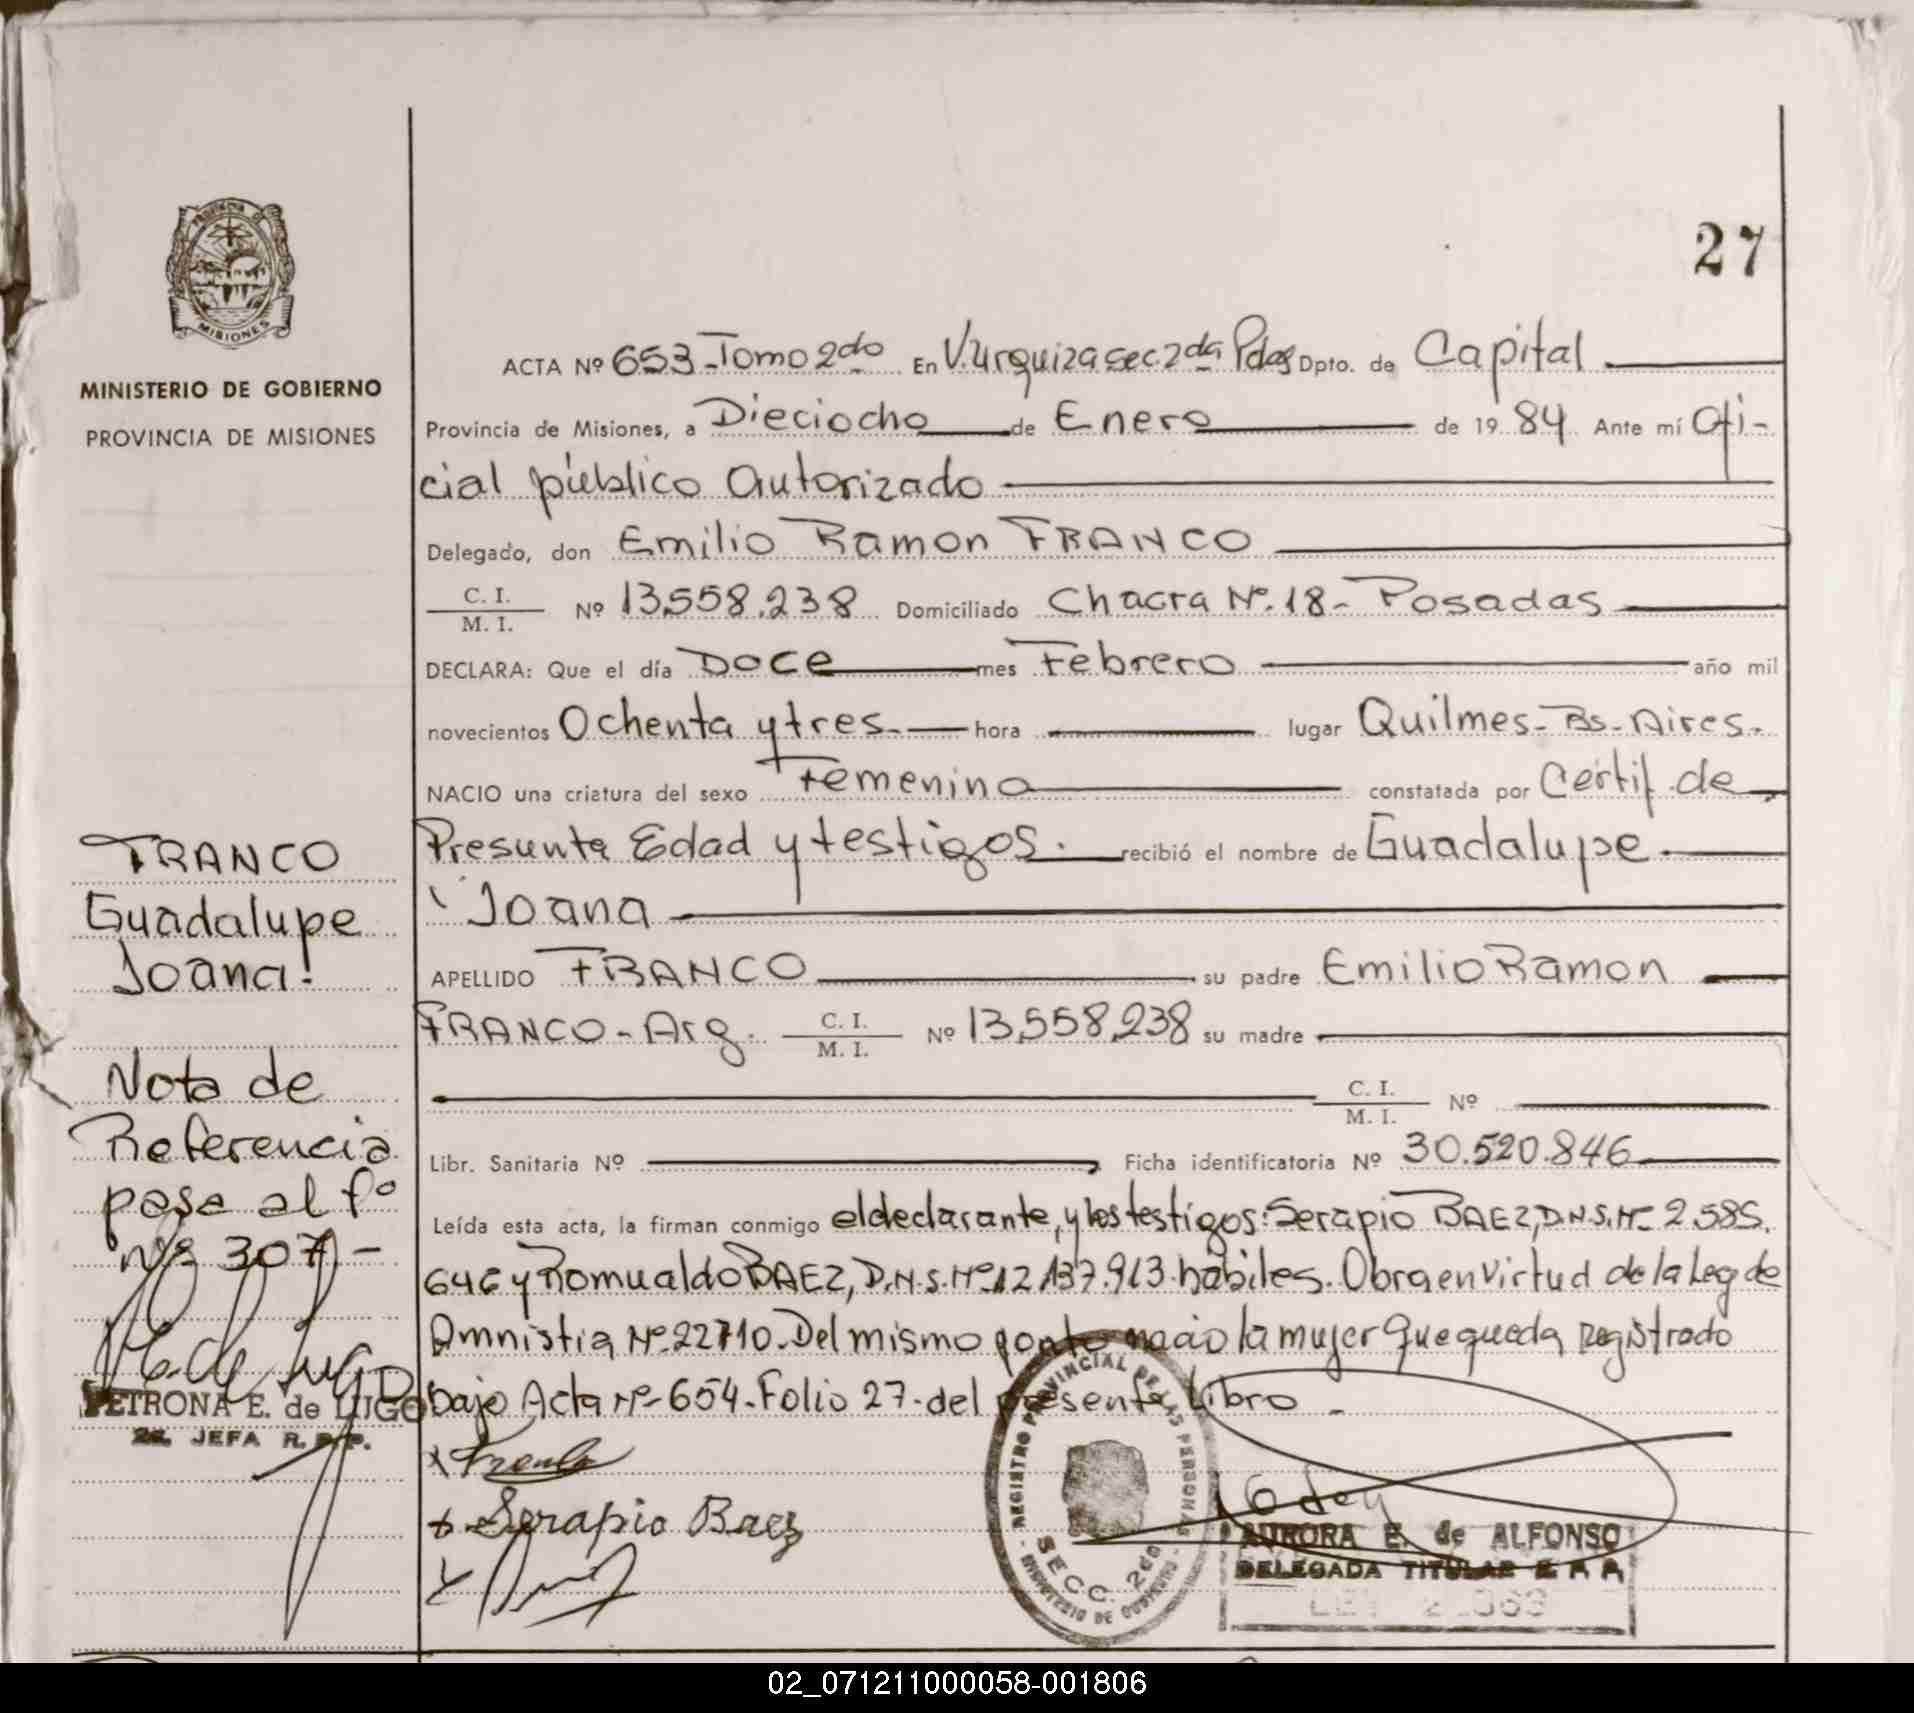 27
PROVINCIA D
MISIONES
MINISTERIO DE GOBIERNO
PROVINCIA DE MISIONES
ACTA Nº 653-Tomo 2do En V.Urquiza sec. 2da Pdas Dpto. de Capital
Provincia de Misiones, a Dieciocho de Enero de 19 84 Ante mí Ofi-
cial público Autorizado
Delegado, don Emilio Ramon FRANCO
C. I. / M. I. Nº 13.558.238 Domiciliado Chacra Nº.18- Posadas
DECLARA: Que el día Doce mes Febrero año mil
novecientos Ochenta y tres.- hora lugar Quilmes-Bs-Aires.
NACIO una criatura del sexo Femenino constatada por Certif. de
Presunta Edad y testigos. recibió el nombre de Guadalupe
Joana
APELLIDO FRANCO su padre Emilio Ramon
FRANCO-Arg. C. I. / M. I. Nº 13.558.238 su madre
C. I. / M. I. Nº
Libr. Sanitaria Nº Ficha identificatoria Nº 30.520.846
Leída esta acta, la firman conmigo el declarante, y los testigos: Serapio BAEZ, D.N.S.Nº- 2.585.
646 y Romualdo BAEZ, D.N.S.Nº.12.137.913. hábiles. Obra en virtud de la Ley de
Amnistia Nº.22710. Del mismo parto nacio la mujer que queda registrado
bajo Acta Nº-654-Folio 27-del presente Libro.-
Serapio Baez
FRANCO
Guadalupe
Joana.
Nota de
Referencia
pasa al fº
nº 307-
PETRONA E. de LUGO
2a. JEFA R. P. P.
REGISTRO PROVINCIAL DE LAS PERSONAS
SECC. 2do
MINISTERIO DE GOBIERNO
AURORA E. de ALFONSO
DELEGADA TITULAR
02_071211000058-001806